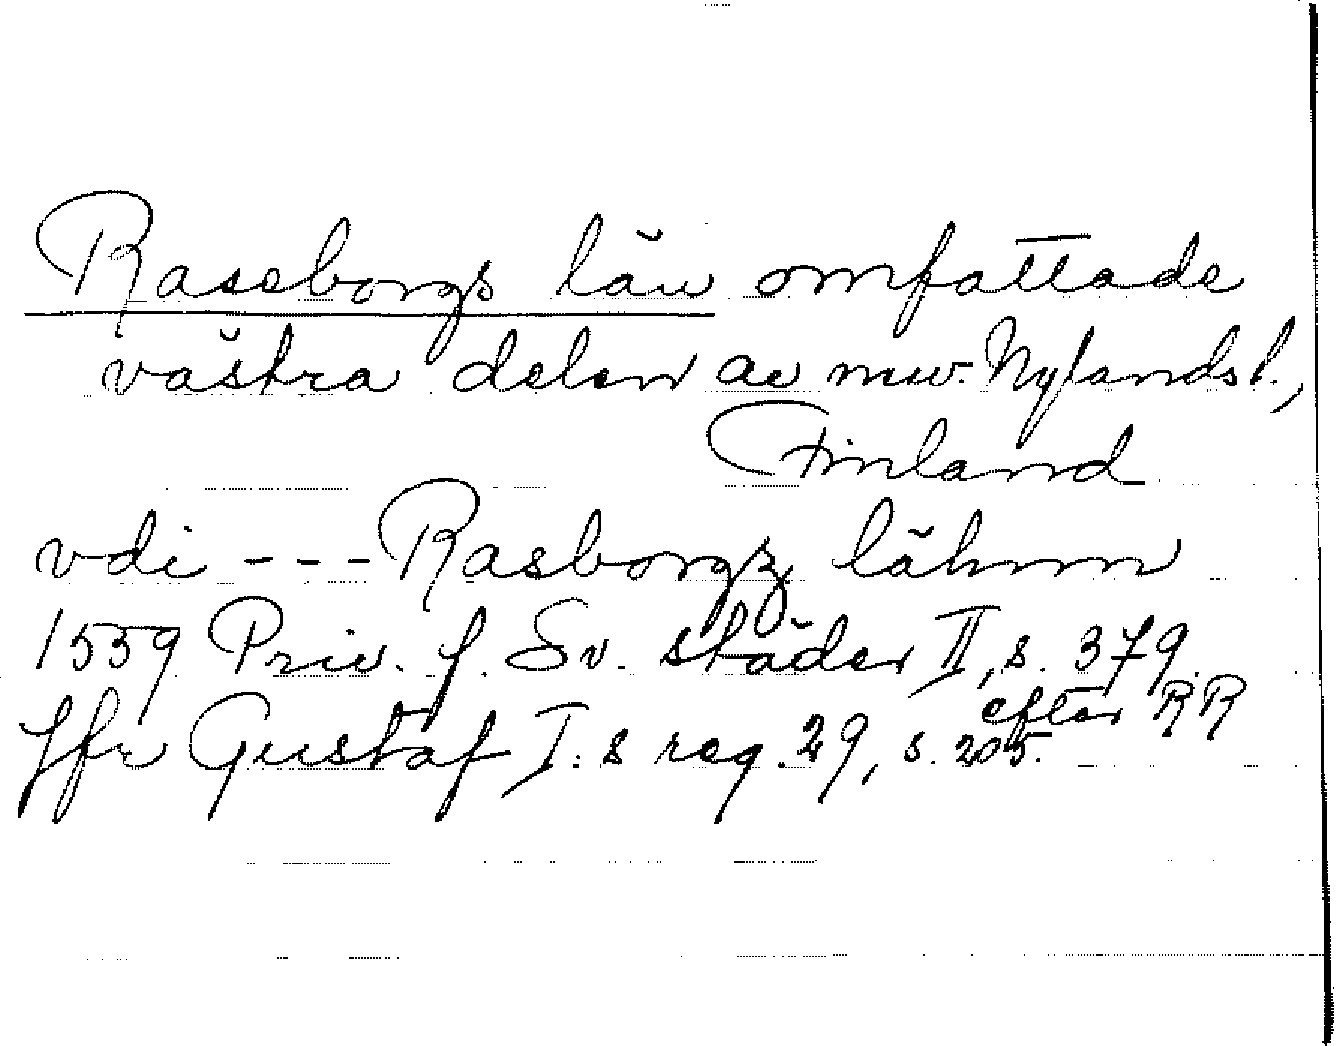 Raseborgs län omfattade
västra delen av nuv. Nylands l.,
Finland
vdi --- Rasborgz lähnn
1559 Priv. f. Sv. städer II, s. 379
efter RR
Jfr Gustaf I:s reg. 29, s. 205.